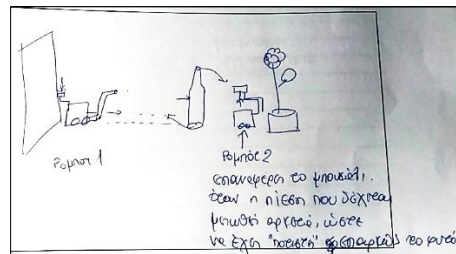 Ρομποτ 1
Ρομπότ 2
επαναφέρει το μπουκάλι.
όταν η πίεση που δέχεται
μειωθεί αρκετά, ώστε
να έχει "ποτιστεί" επαρκώς το φυτό